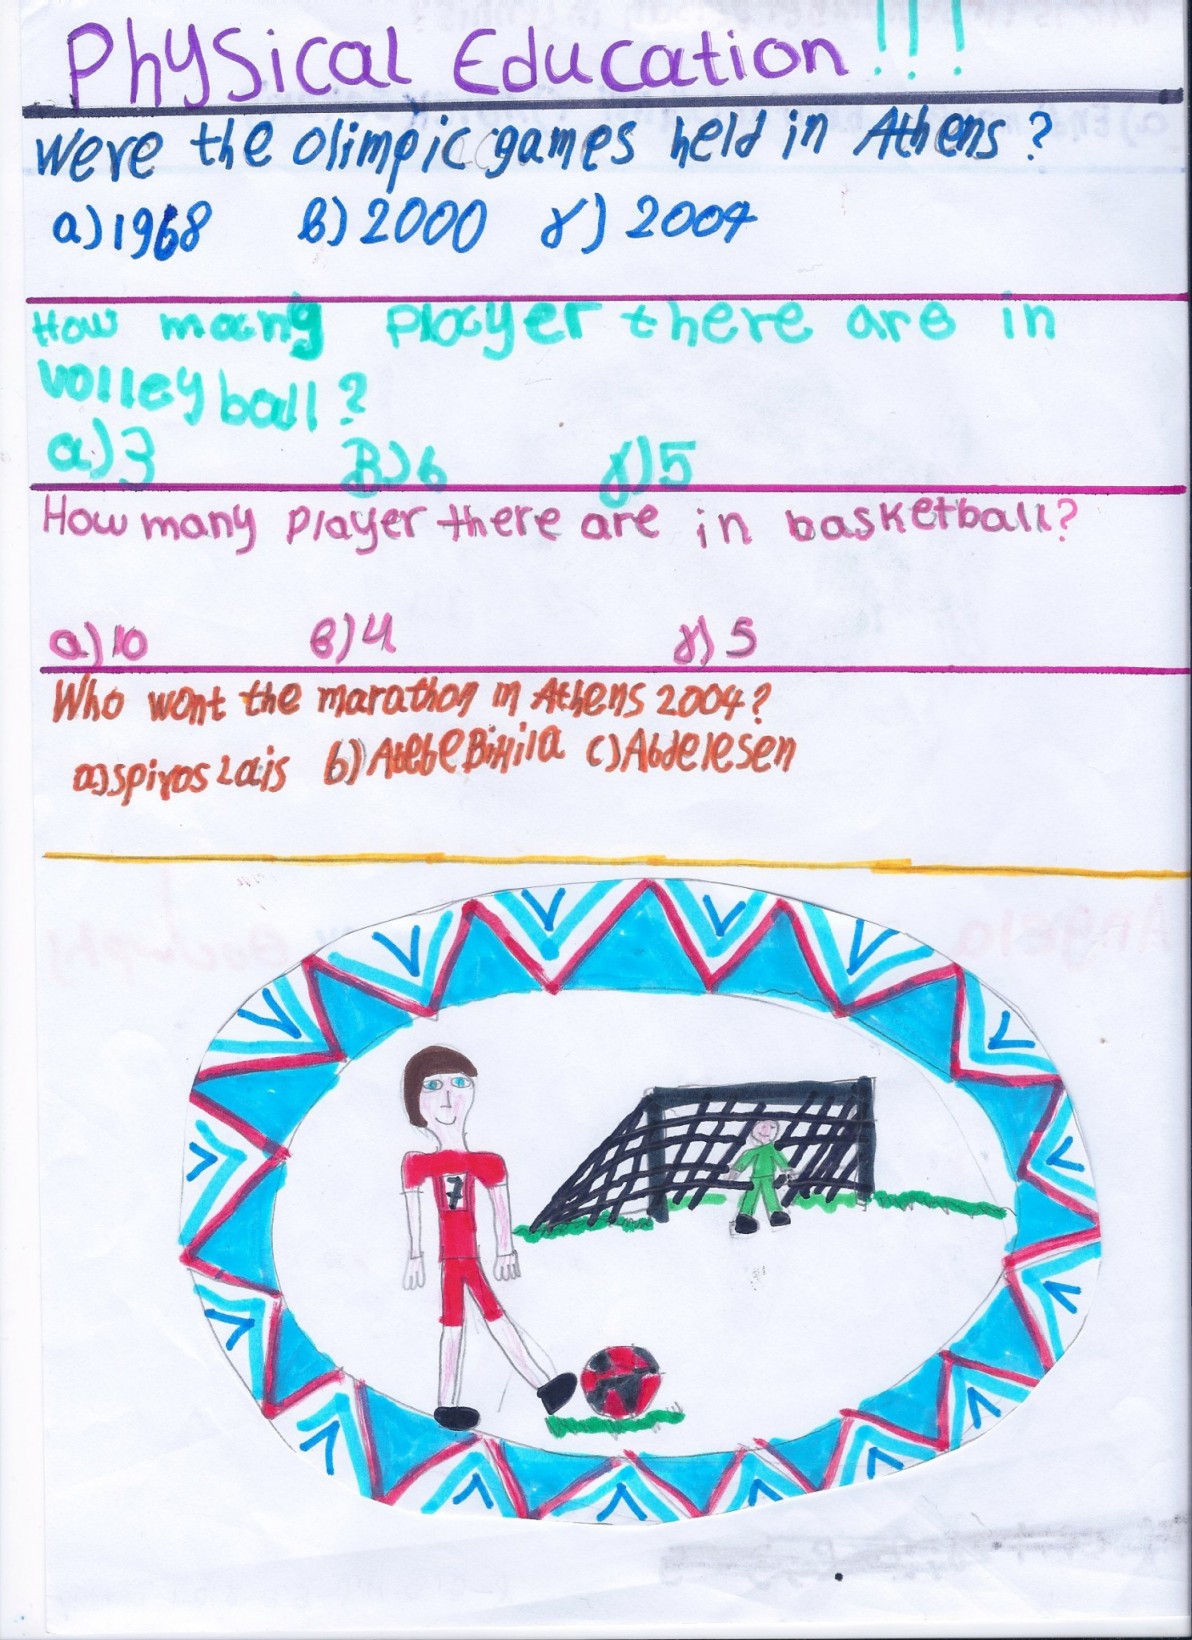 Physical Education!!!
Were the olimpic games held in Athens?
a) 1968 β) 2000 γ) 2004
How many player there are in
volley ball?
a) 3 B) 6 γ) 5
How many player there are in basketball?
a) 10 β) 4 γ) 5
Who wont the marathon in Athens 2004?
a) spiros Lais b) Atebe Bikila c) Abdelesen
7